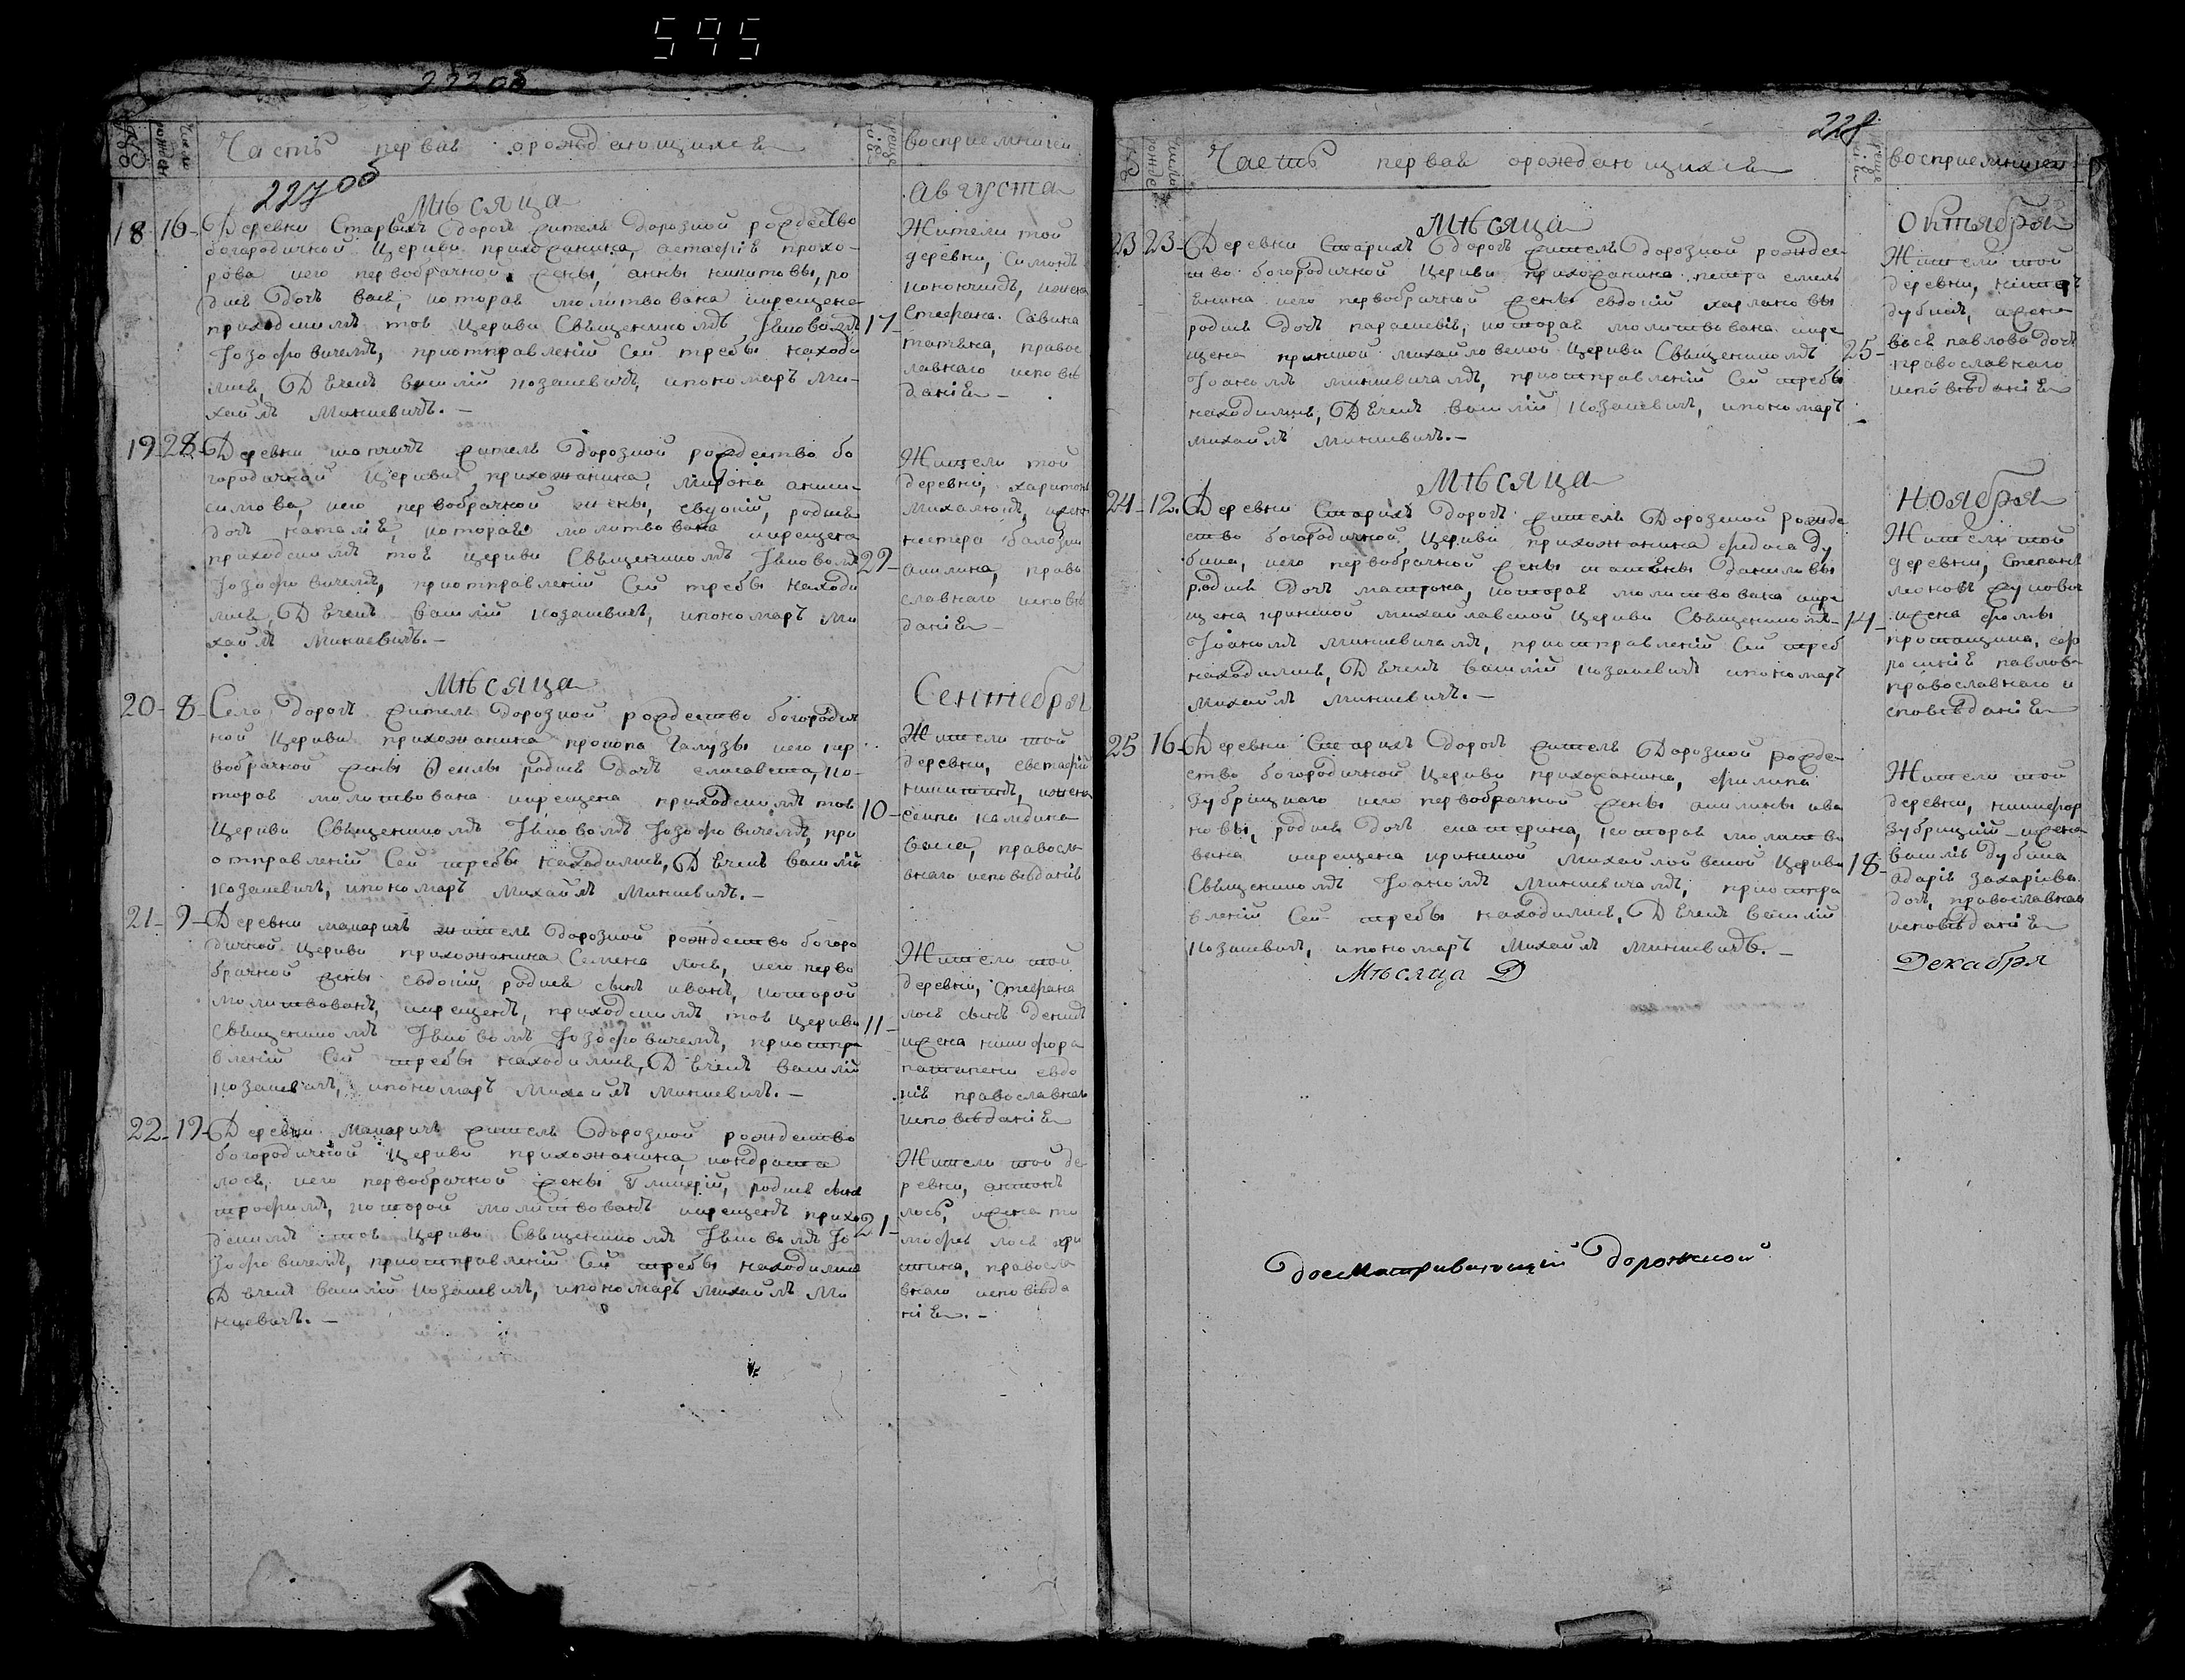 595
222 об
Часть первая ораждающихся
восприемники
227 об
Мѣсяца
Августа
18 16 Деревни Старыхъ Дорогъ житель Дорозкой рождество
богородичной Церкви прихожанина, астафія прохо-
рова иего первобрачной жены, анны никитовы, ро
дися дочъ васа, которая молитвована икрещена
приходскимъ тоя Церкви Священникомъ Іаковомъ 17
Іозофовичемъ, приотправленіи Сей требы находи
лися, Дѣчекъ василій козакевичъ, ипономаръ Ми-
хайлъ Минкевичъ.
Жители той
деревни, Симонъ
ижена
Стефана Савина
татяна, правос
лавнаго исповѣ
данія
19 28 Деревни житель Дорозкой рождество бо
городичной Церкви прихожанина, Мирона аниси-
симова, иего первобрачной жены, евдокіи, родися
дочъ наталія, которая молитвована икрещена
приходскимъ тоя церкви Священникомъ Іаковомъ 29
Іозофовичемъ, приотправленіи Сей требы находи
лися, Дѣчекъ василій козакевичъ, ипономаръ Ми
хайлъ Минкевичъ.
Жители той
деревни, харитонъ
Михалкой, ижена
нестера
акилина, право
славнаго исповѣ
данія
Мѣсяца
Сентебря
20 8 Села Дорогъ житель Дорозкой рождество богородич
ной Церкви прихожанина прокопа Галузы иего пер
вобрачной жены Ѳеклы родися дочъ елисавета, ко-
торая молитвована икрещена приходскимъ тоя 10
Церкви Священникомъ Іаковомъ Іозофовичемъ, при
отправленіи Сей требы находилися, Дѣчекъ василій
козакевичъ, ипономаръ Михайлъ Минкевичъ.
Жители той
деревни, евстафій
ижена
правосла
внаго исповѣданія
21 9 Деревни макаричъ житель Дорозкой рождество богоро
дичной Церкви прихожанина Семена лося, иего перво
брачной жены евдокіи родися сынъ иванъ, которой
молитвованъ, икрещенъ, приходскимъ тоя Церкви 11
Священникомъ Іаковомъ Іозофовичемъ, приотпра
вленіи Сей требы находилися, Дѣчекъ василій
козакевичъ, ипономаръ Михайлъ Минкевичъ.
Жители той
деревни, Стефана
лося сынъ денисъ
ижена никифора
евдо
кія православнаго
исповѣданія
22 19 Деревни Макаричъ житель Дорозкой рождество
богородичной Церкви прихожанина, кондрата
лося, иего первобрачной жены Гликеріи, родися сынъ
трофимъ, которой молитвованъ икрещенъ прихо 21
дскимъ тоя Церкви Священникомъ Іаковомъ Іо
зофовичемъ, приотправленіи Сей требы находилися
Дѣчекъ василій козакевичъ, ипономаръ Михайлъ Ми
нкевичъ.
Жители той де
ревни, антонъ
лось, ижена ти
мофея лося хри
стина, правосла
внаго исповѣда
нія.
228
Часть первая ораждающихся
восприемники
Мѣсяца
Октября
23 23 Деревни Старихъ Дорогъ житель Дорозкой рождес
тво богородичной Церкви прихожанина петра емель
янина иего первобрачной жены евдокіи харлановы
родися дочъ параскевія, которая молитвована икре
щена Михайловской Церкви Священникомъ 25
Іоаномъ минкевичамъ, приотправленіи Сей требы
находилися, Дѣчекъ василій козакевичъ, ипономаръ
михайлъ минкевичъ.
Жители той
деревни,
дубина, ижена
павлова дочъ
православнаго
исповѣданія
Мѣсяца
Ноября
24 12 Деревни Старихъ Дорогъ житель Дорозкой рожде
ство богородичной Церкви прихожанина федоса ду
бика, иего первобрачной жены татяны даниловы
родися дочъ матрона, которая молитвована икре
щена Михайлавской Церкви Священникомъ 14
Іоаномъ Минкевичамъ, приотправленіи Сей треб
находилися, Дѣчекъ василій козакевичъ ипономаръ
михайлъ минкевичъ.
Жители той
деревни, Степанъ
ижена фомы
павлова
православнаго и
сповѣданія
25 16 Деревни Старихъ Дорогъ житель Дорозкой рожде
ство богородичной Церкви прихожанина, филипа
зубрицкаго иего первобрачной жены акилины ива
новы, родися дочъ екатерина, которая молитво
вана икрещена Михайловской Церкви 18
Священникомъ Іоаномъ Минкевичамъ, приотпра
вленіи Сей требы находилися, Дѣчекъ василій
козакевичъ, ипономаръ Михайлъ минкевичъ.
Жители той
деревни, никифор
зубрицкій ижена
василя дубика
дарія захаріева
дочъ, православнаго
исповѣданія
Мѣсяца Д
Декабря
досматривающій Дорожской